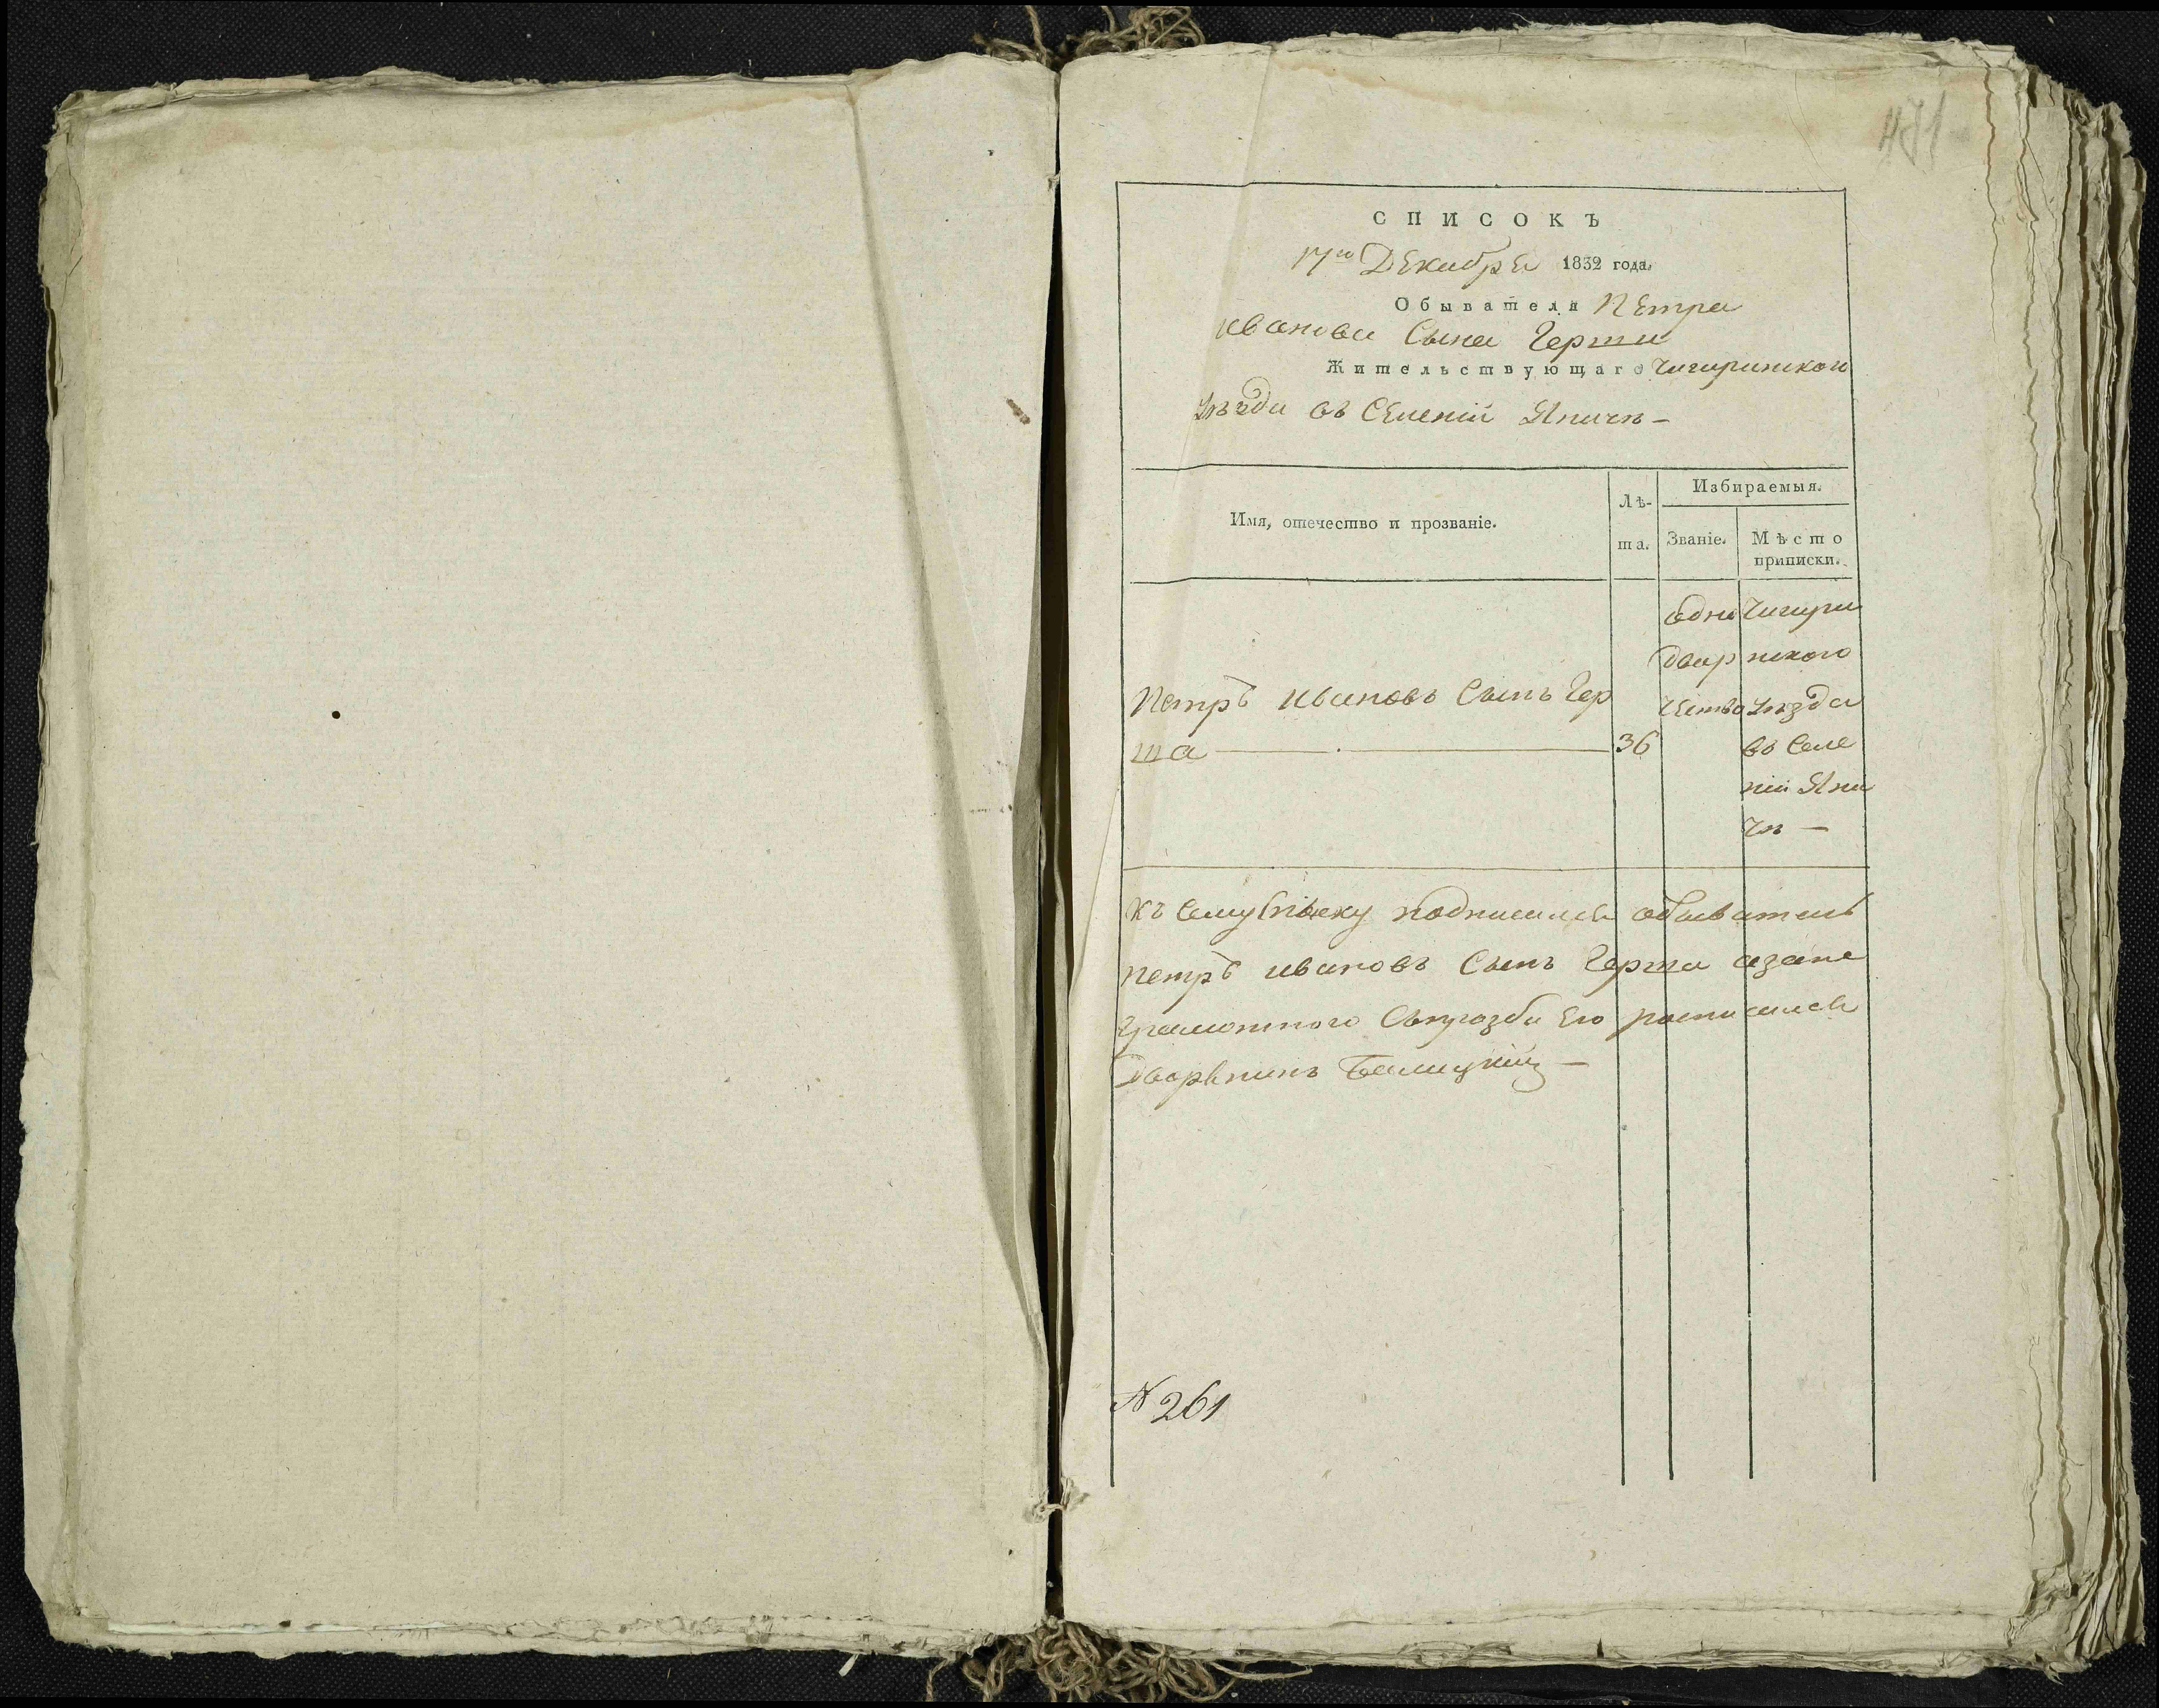 СПИСОКЪ
17го Декабря 1832 года.
Обывателя Петра
Иванова Сына Герти
Жительствующаго Чигиринского
уѣзда въ Селеніи Яничѣ —
Имя, отечество и прозваніе.
Лѣ-
та.
Избираемыя.
Званіе.
Мѣсто
приписки.
Петръ Ивановъ Сынъ Гер
та
36
Одно
двор
чество
Чигири
нского
уѣзда
въ Селе
ніи Яни
чѣ —
Къ Сему Списку подписался обыватель
Петръ Ивановъ Сынъ Герта азане
грамотного Спрозби Его росписался
Дворянинъ
№ 261